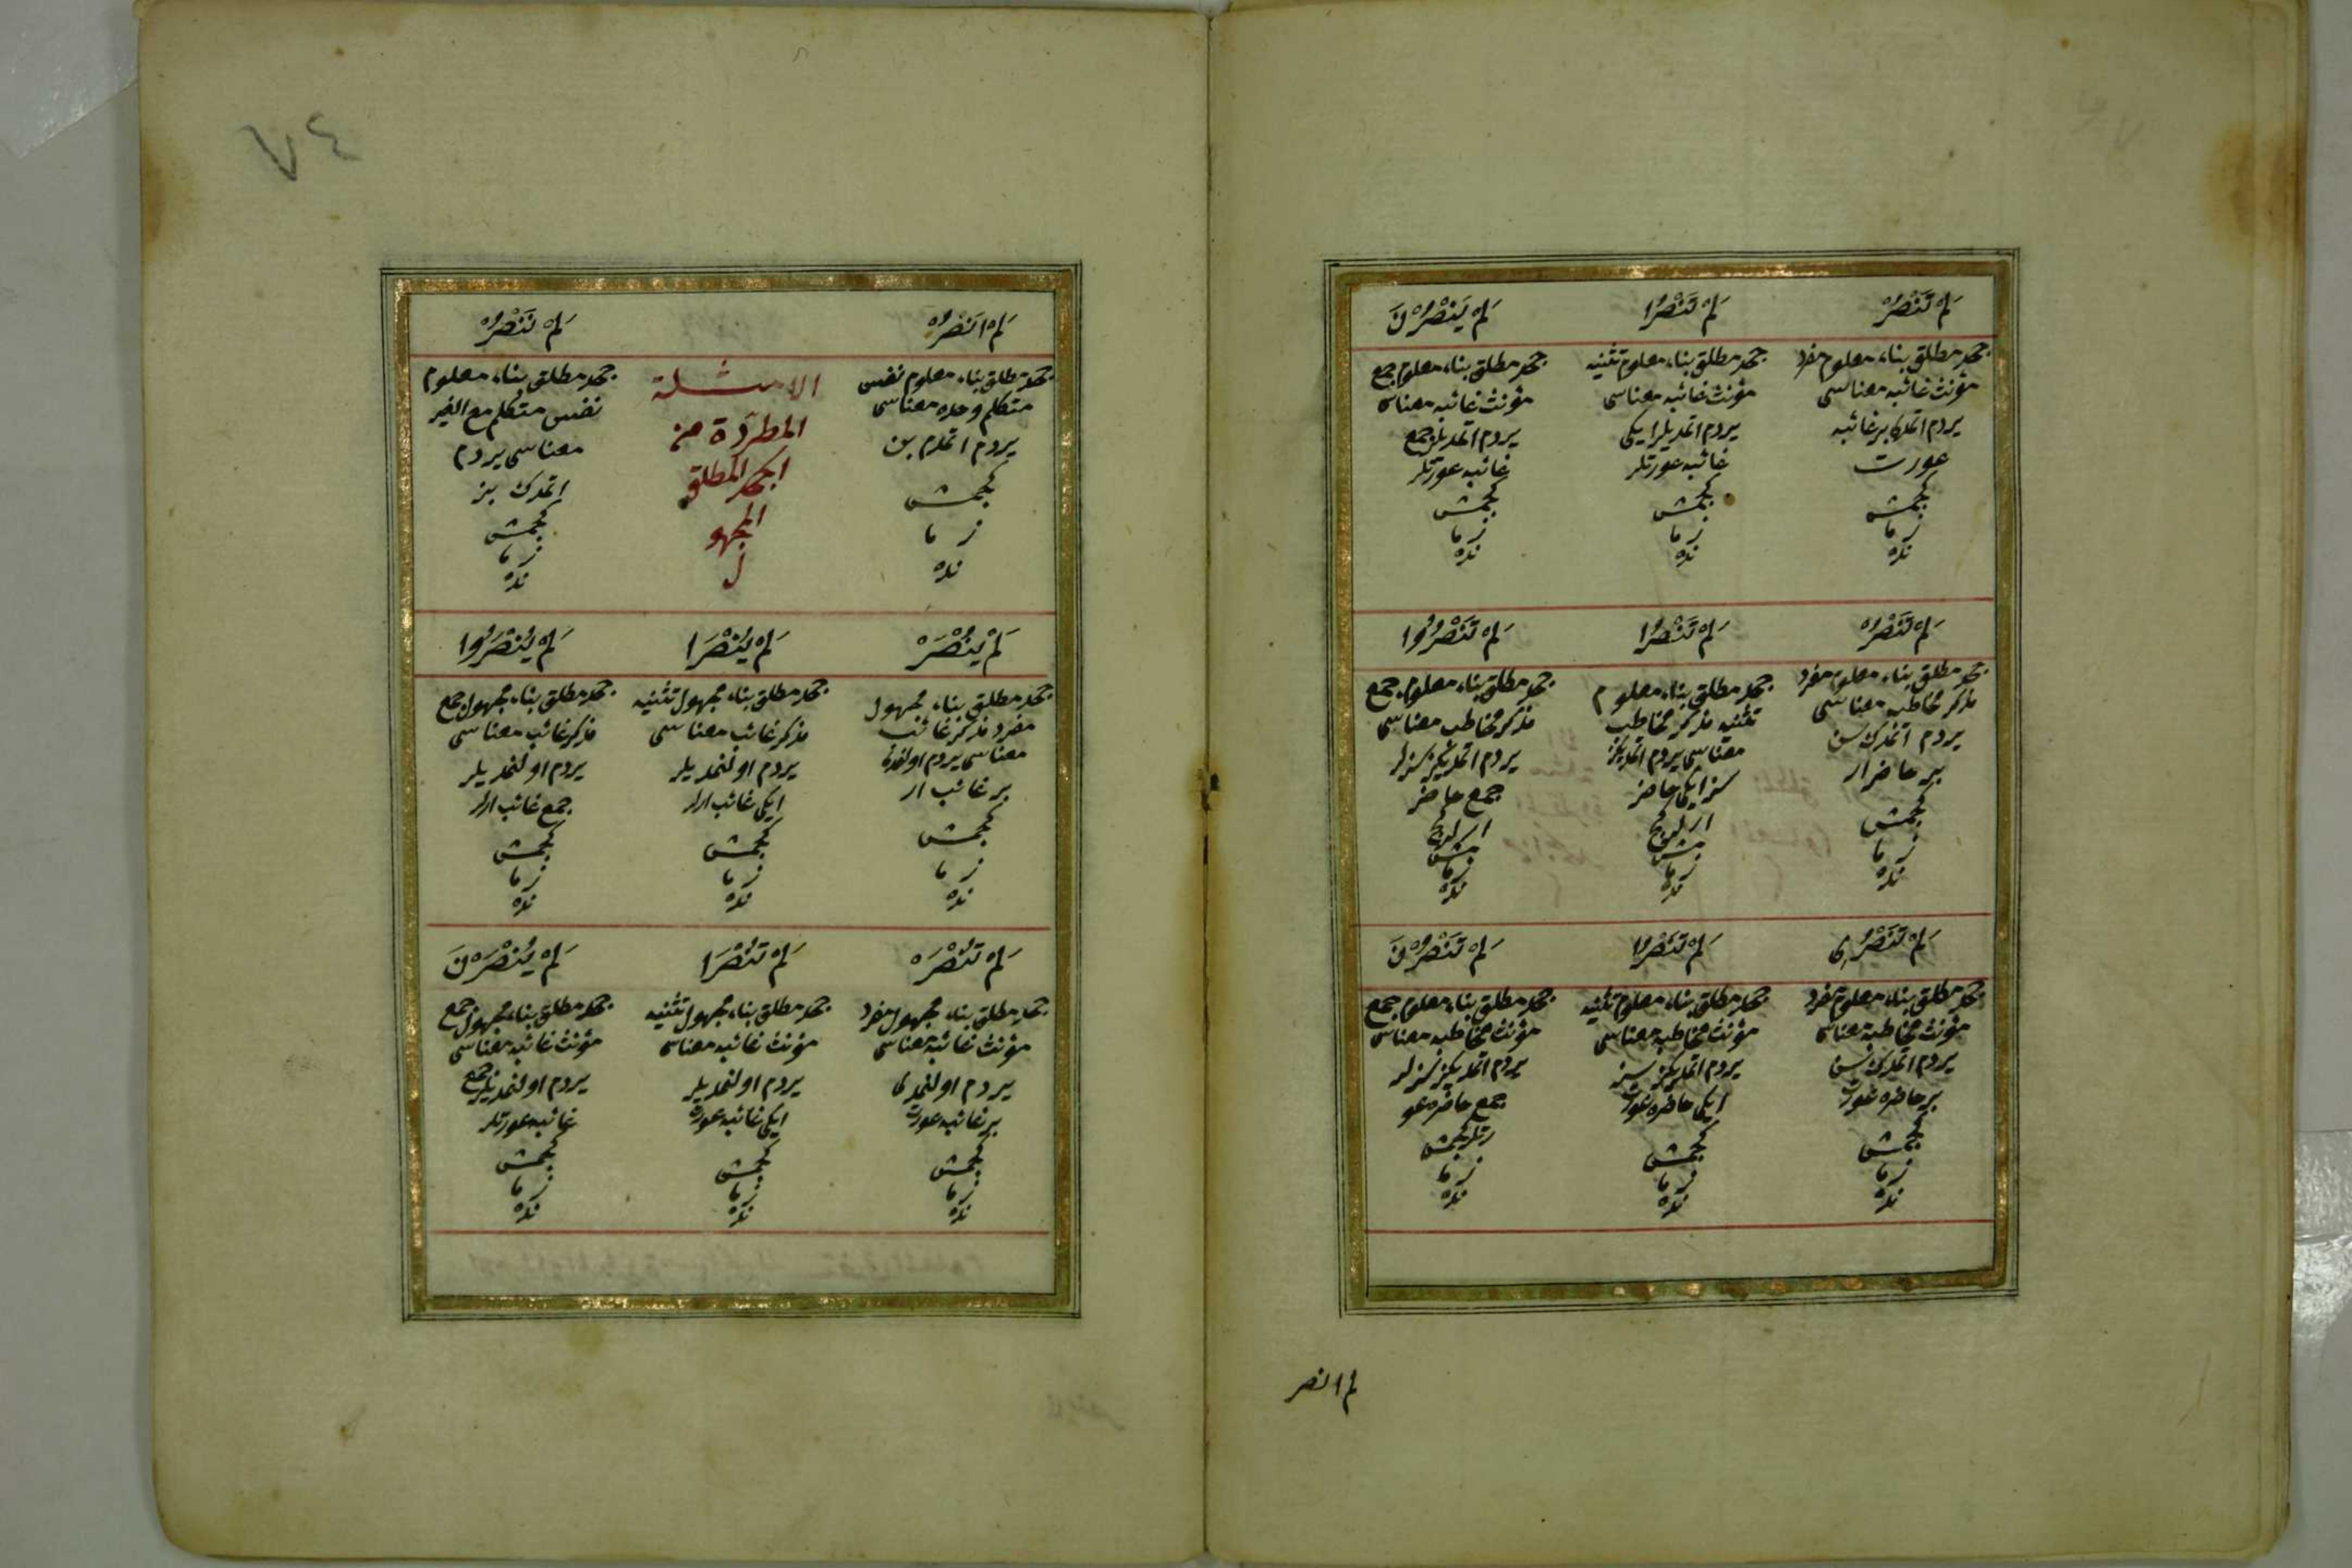 لَمْ تَنْصُرْ
جحد مطلق بناء معلوم مفرد
مؤنث غائبه معناسی
يردم اتمدی بر غائبه
عورت
كجمش
زما
نده
لَمْ تَنْصُرَا
جحد مطلق بناء معلوم تثنيه
مؤنث غائبه معناسی
يردم اتمديلر ايكی
غائبه عورتلر
كجمش
زما
نده
لَمْ يَنْصُرْنَ
جحد مطلق بناء معلوم جمع
مؤنث غائبه معناسی
يردم اتمديلر جمع
غائبه عورتلر
كجمش
زما
نده
لَمْ تَنْصُرْ
جحد مطلق بناء معلوم مفرد
مذكر مخاطب معناسی
يردم اتمدك سن
بر حاضر ار
كجمش
زما
نده
لَمْ تَنْصُرَا
جحد مطلق بناء معلوم
تثنيه مذكر مخاطب
معناسی يردم اتمديكز
سز ايكی حاضر
ارلر كج
مش
زما
نده
لَمْ تَنْصُرُوا
جحد مطلق بناء معلوم جمع
مذكر مخاطب معناسی
يردم اتمديكز سزلر
جمع حاضر
ارلر كج
مش
زما
نده
لَمْ تَنْصُرِی
جحد مطلق بناء معلوم مفرد
مؤنث مخاطبه معناسی
يردم اتمدك سن
بر حاضره عورت
كجمش
زما
نده
لَمْ تَنْصُرَا
جحد مطلق بناء معلوم تثنيه
مؤنث مخاطبه معناسی
يردم اتمديكز سز
ايكی حاضره عورت
كجمش
زما
نده
لَمْ تَنْصُرْنَ
جحد مطلق بناء معلوم جمع
مؤنث مخاطبه معناسی
يردم اتمديكز سزلر
جمع حاضره عو
رتلر كجمش
زما
نده
لم انصر
٧٤
لَمْ اَنْصُرْ
جحد مطلق بناء معلوم نفس
متكلم وحده معناسی
يردم اتمدم بن
كجمش
زما
نده
الامثلة
المطردة من
الجحد المطلق
المجهو
ل
لَمْ نَنْصُرْ
جحد مطلق بناء معلوم
نفس متكلم مع الغير
معناسی يردم
اتمدك بز
كجمش
زما
نده
لَمْ يُنْصَرْ
جحد مطلق بناء مجهول
مفرد مذكر غائب
معناسی يردم اولنمدی
بر غائب ار
كجمش
زما
نده
لَمْ يُنْصَرَا
جحد مطلق بناء مجهول تثنيه
مذكر غائب معناسی
يردم اولنمديلر
ايكی غائب ارلر
كجمش
زما
نده
لَمْ يُنْصَرُوا
جحد مطلق بناء مجهول جمع
مذكر غائب معناسی
يردم اولنمديلر
جمع غائب ارلر
كجمش
زما
نده
لَمْ تُنْصَرْ
جحد مطلق بناء مجهول مفرد
مؤنث غائبه معناسی
يردم اولنمدی
بر غائبه عورت
كجمش
زما
نده
لَمْ تُنْصَرَا
جحد مطلق بناء مجهول تثنيه
مؤنث غائبه معناسی
يردم اولنمديلر
ايكی غائبه عورت
كجمش
زما
نده
لَمْ يُنْصَرْنَ
جحد مطلق بناء مجهول جمع
مؤنث غائبه معناسی
يردم اولنمديلر جمع
غائبه عورتلر
كجمش
زما
نده